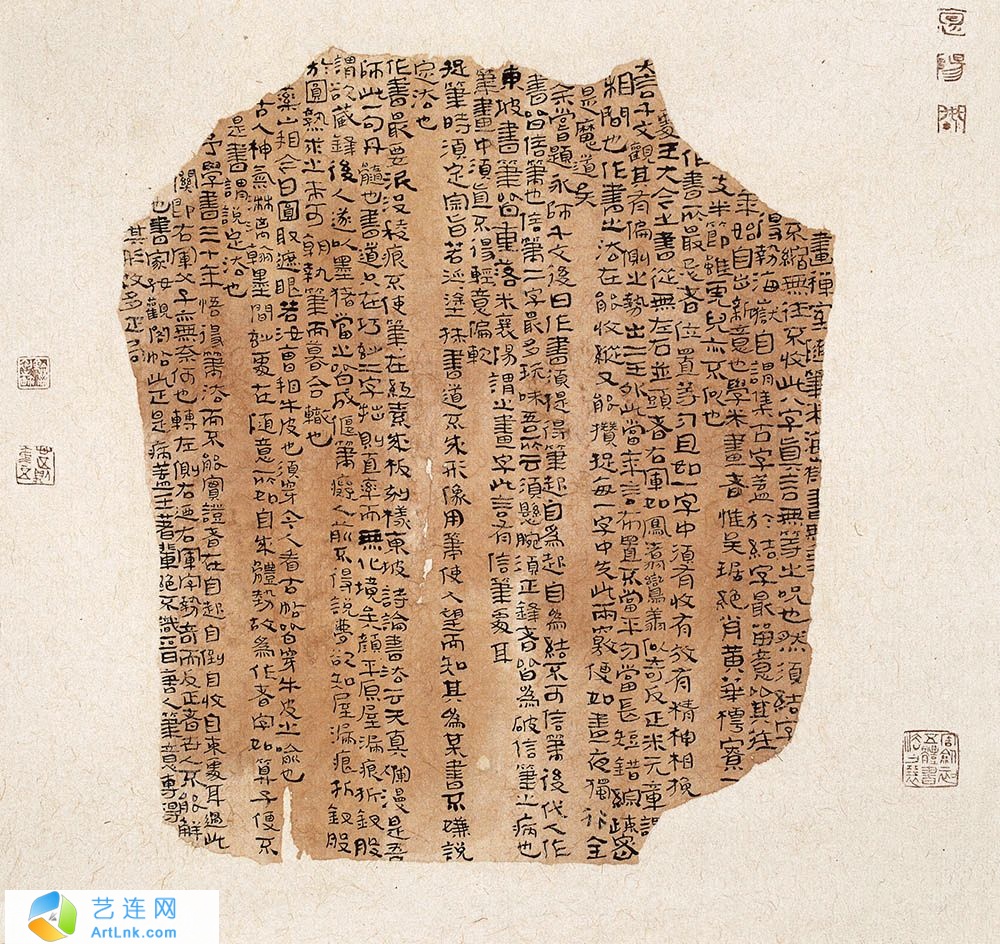 畫禪室隨筆米海嶽書無垂
不縮無往不收此八字眞言無等之咒也然須結字
得勢海嶽自謂集古字蓋於結字最留意比其
年始自出新意也學米書者惟吳琚絕肖黃華樗寮一
支半節雖虎兒亦不似也
作書所最忌者位置等勻且如一字中須有收有放有精神相挽
處王大令之書從無左右並頭者右軍如鳳翥鸞翔似奇反正米元章謂
大年千文觀其有偏側之勢出二王外此皆言布置不當平勻當長短錯綜疎密
相間也作書之法在能收縱又能攢捉每一字中失此兩竅便如晝夜獨行全
是魔道矣
余嘗題永師千文後曰作書須提得筆起自為起自為結不可信筆後代人作
書皆信筆也信筆二字最多玩味吾所云須懸腕須正鋒者皆為破信筆之病也
東坡書筆皆重落米襄陽謂之畫字此言有信筆處耳
筆畫中須直不得輕意偏軟
捉筆時須定宗旨若塗抹書道不成形像用筆使人望而知其為某書不嫌說
定法也
作書最要泯沒稜痕不使筆在紙素成板刻樣東坡詩論書法云天真爛漫是吾
師此一句丹髓也書道只在巧妙二字拙則直率而無化境矣顏平原屋漏痕折釵股
謂欲藏鋒後人遂以墨豬當之皆成偃筆癡人前不得說夢欲知屋漏痕折釵股
於圓熟求之未可朝執筆而暮合轍也
藥山相令曰圖取遮眼若汝曹相牛皮也須穿今人看古帖皆穿牛皮之喻也
古人神氣淋漓翰墨間妙處在隨意所如自成體勢故為作者字如算子便不
是書謂說定法也
予學書三十年悟得筆法而不能實證者在自起自倒自收自束處耳過此
關即右軍父子亦無奈何也轉左側右迺右軍字勢奇而反正者世人不能解
也書家好觀閣帖此正是病蓋王著輩絕不識晉唐人筆意專得
其形故多正局
艺连网
ArtLnk.com